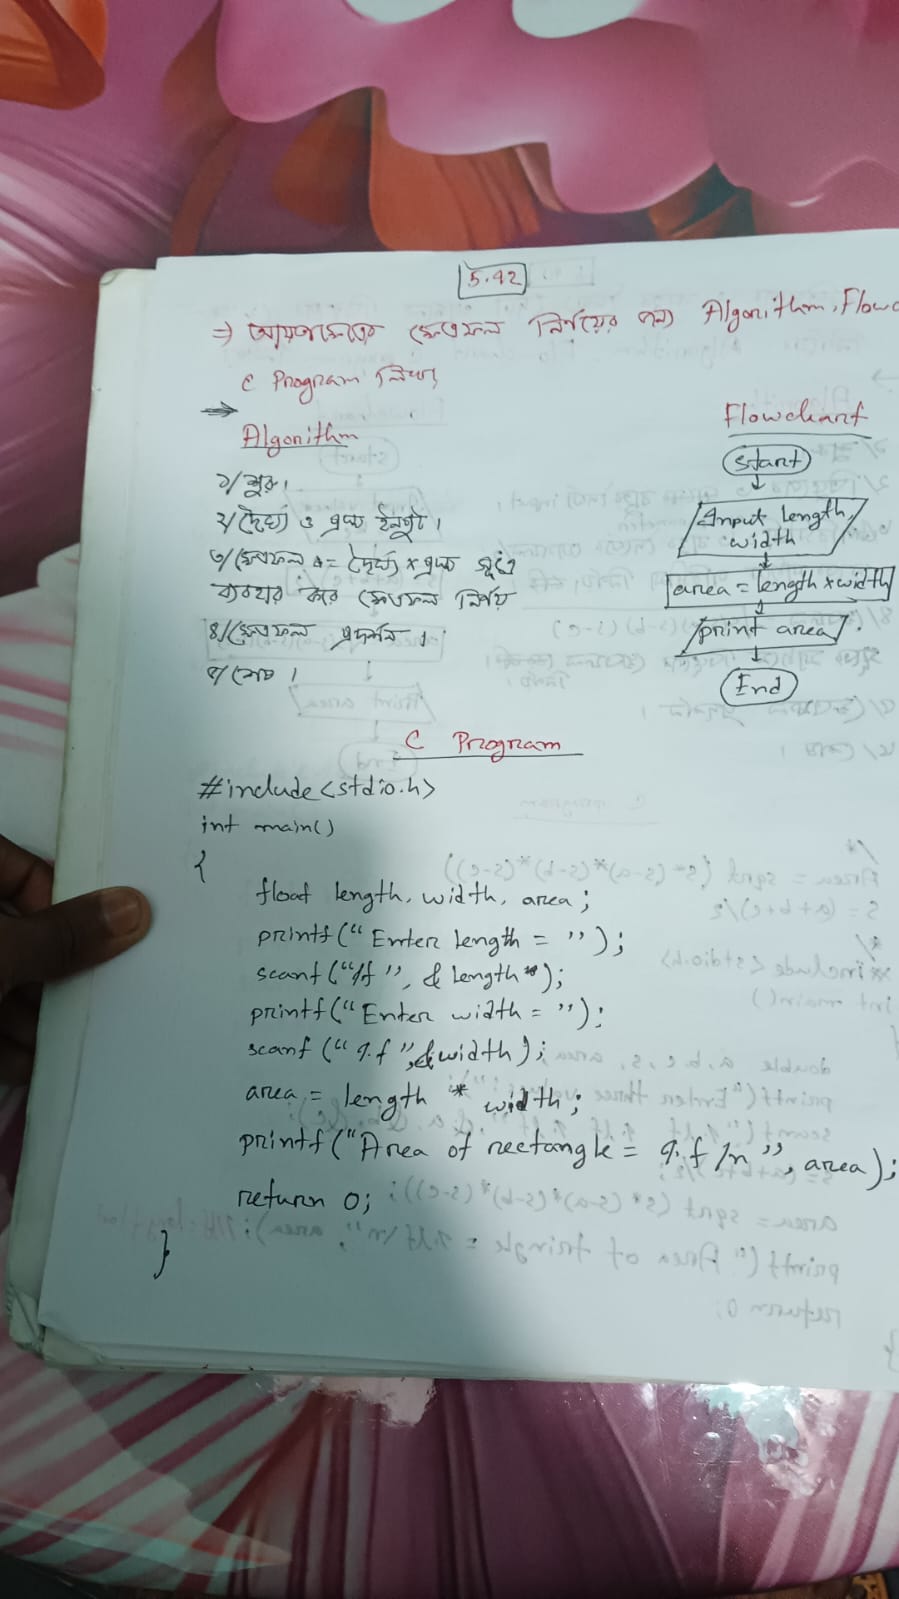 5.42
⇒ আয়তক্ষেত্রের ক্ষেত্রফল নির্ণয়ের জন্য Algorithm, Flowc
C Program লিখ।
Algorithm
১/ শুরু।
২/ দৈর্ঘ্য ও প্রস্থ ইনপুট।
৩/ ক্ষেত্রফল = দৈর্ঘ্য × প্রস্থ সূত্র
ব্যবহার করে ক্ষেত্রফল নির্ণয়
৪/ ক্ষেত্রফল প্রদর্শন।
৫/ শেষ।
Flowchart
Start
Input length,
width
area = length × width
print area
End
C Program
#include<stdio.h>
int main()
{
float length, width, area;
printf("Enter length = ");
scanf("%f", &length);
printf("Enter width = ");
scanf("%f", &width);
area = length * width;
printf("Area of rectangle = %f /n", area);
return 0;
}